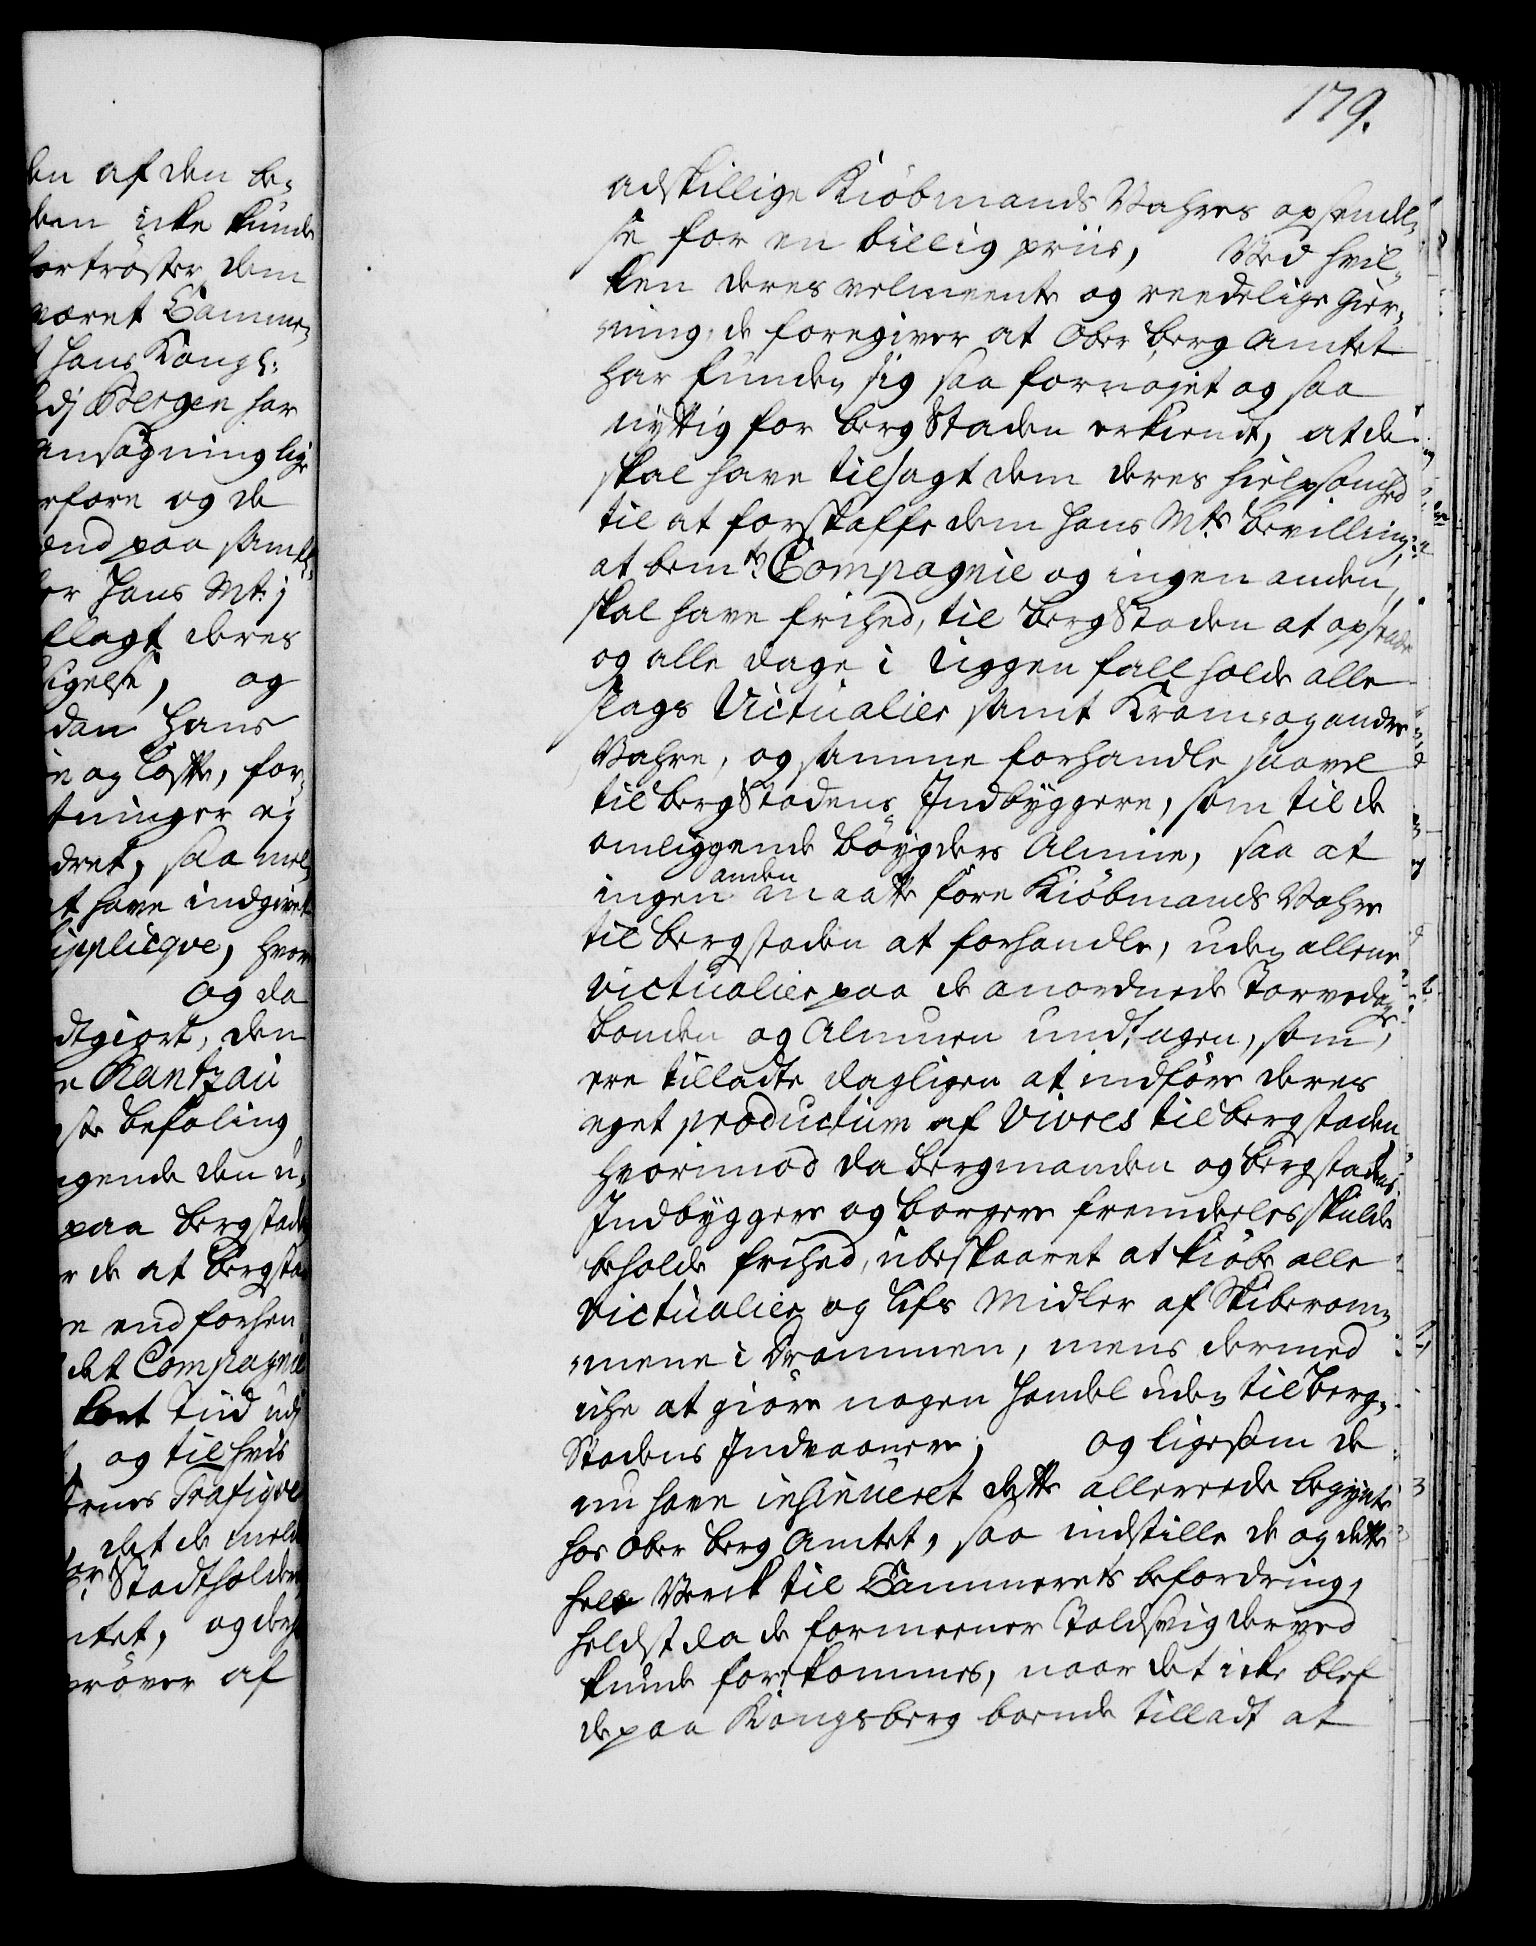 179.
adskillige Kiöbmands Vahres opsendel„
se for en billig priis, Ved hvil„
ken deres velmeente og reedelige gier„
ning, de foregiver at Ober Berg Amtet
har funden sig saa fornøjet og saa
nyttig for Berg Staden erkiendt, at de
skal have tilsagt dem deres hielpsomhed
til at forskaffe dem Hans Mts bevilling,
at bemte Compagnie og ingen anden,
skal have frihed, til Berg Staden at opsende
og alle dage i Uiggen fall holde alle
slags Victualier samt Kram: og andre
Vahre, og samme forhandle saavel
til Berg Stadens Indbyggere, som til de
omliggende böygders Almue, saa at
ingen anden maatte føre Kiöbmands Vahre
til Bergstaden at forhandle, uden allene
Victualier paa de anordnede Torvedage,
bonden og Almuen undtagen, som
ere tilladte dagligen at indføre deres
eget productum af Vivres til Bergstaden
hvorimod da Bergmanden og Bergstadens
Indbyggere og borgere fremdeeles skulde
beholde frihed, ubeskaaret at kiöbe alle
Victualier og Lifs Midler af Skiberom„
mene i Drammen, mens dermed
iche at giöre nogen Handel uden til Berg„
Stadens Indvaanere; og ligesom de
nu have insinueret dette allerede begynte
hos Ober Berg Amtet, saa indstille de og dette
hele Verck til Cammerets befordring,
heldst da de formeener Toldsvig derved
kunde forekommes, naar det icke blef
de paa Kongsberg boende tilladt at
den af den be„
den icke kunde
fortröster dem
været Cammer„
Hans Kongl:
Bergen har
ansögning lige
og de
paa samme
Hans Mt:
flagt deres
og
dan Hans
og Coste, for„
tninger ej
dret, saa vel
t have indgivet
Supplicqve, hvor
og da
giort, den
Rantzau
befaling
gende den u„
paa Bergstaden
de at Bergsta
end forhen
det Compagnie
kort Tiid ud
og til hvis
Trafiqve
det de
Stadtholder
ntet, og
pröver af